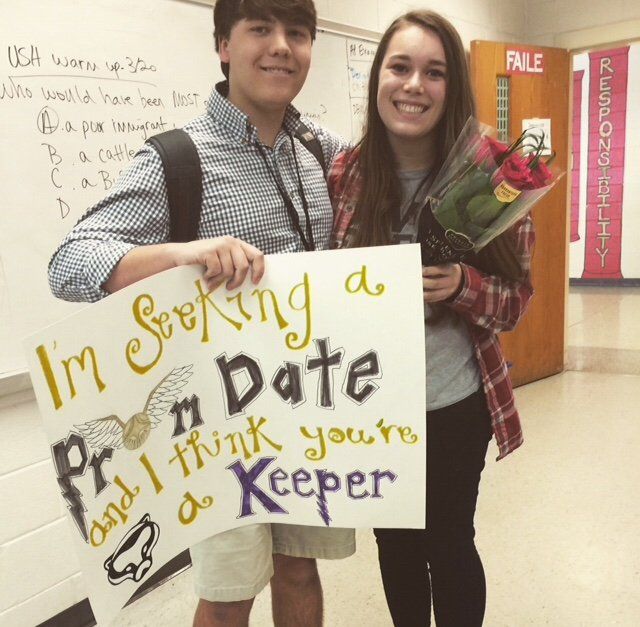 USH warm up 3/20
who would have been most
A. a poor immigrant
B. a cattle
C. a B
D
FAILE
RESPONSIBILITY
I'm Seeking a
Prom Date
and I think you're
a Keeper